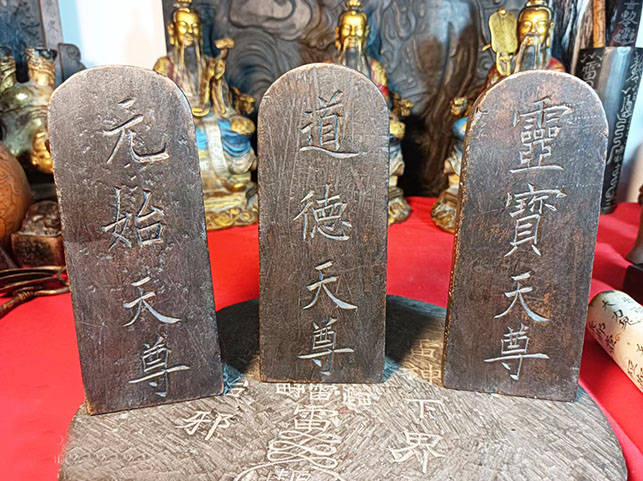 元始天尊
道德天尊
靈寶天尊
邪
雷
下界